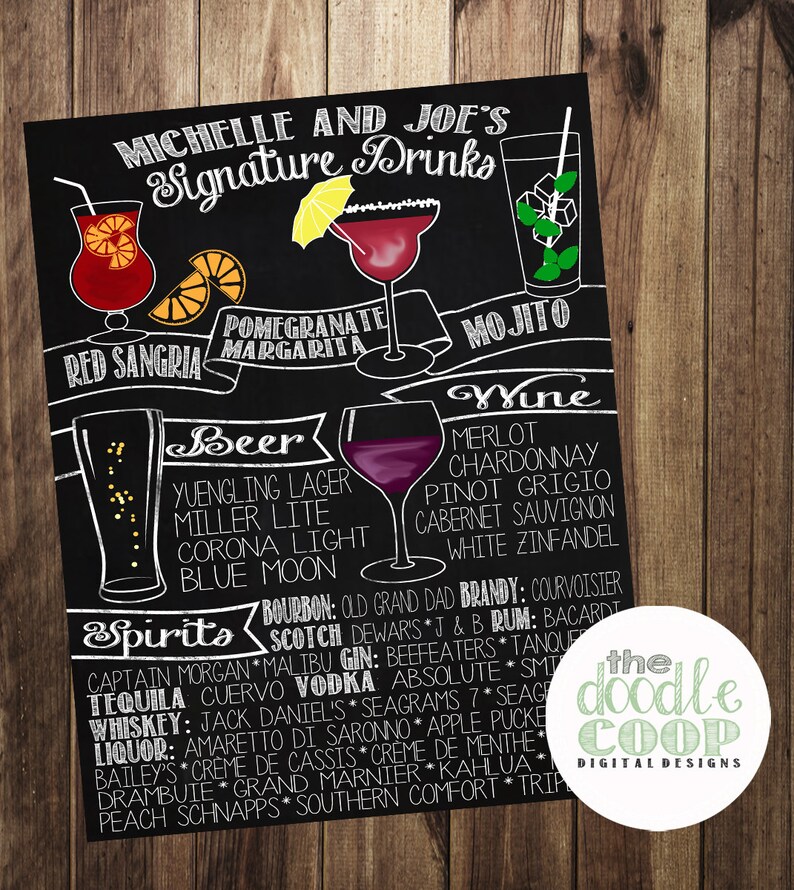 MICHELLE AND JOE'S
Signature Drinks
RED SANGRIA
POMEGRANATE
MARGARITA
MOJITO
Beer
YUENGLING LAGER
MILLER LITE
CORONA LIGHT
BLUE MOON
Wine
MERLOT
CHARDONNAY
PINOT GRIGIO
CABERNET SAUVIGNON
WHITE ZINFANDEL
Spirits
BOURBON: OLD GRAND DAD BRANDY: COURVOISIER
SCOTCH DEWAR'S * J & B RUM: BACARDI
CAPTAIN MORGAN * MALIBU GIN: BEEFEATERS *
TEQUILA CUERVO VODKA ABSOLUTE *
WHISKEY: JACK DANIEL'S * SEAGRAMS 7 *
LIQUOR: AMARETTO DI SARONNO * APPLE
BAILEY'S * CRÈME DE CASSIS * CRÈME DE MENTHE *
DRAMBUIE * GRAND MARNIER * KAHLUA *
PEACH SCHNAPPS * SOUTHERN COMFORT *
the
doodle
COOP
DIGITAL DESIGNS